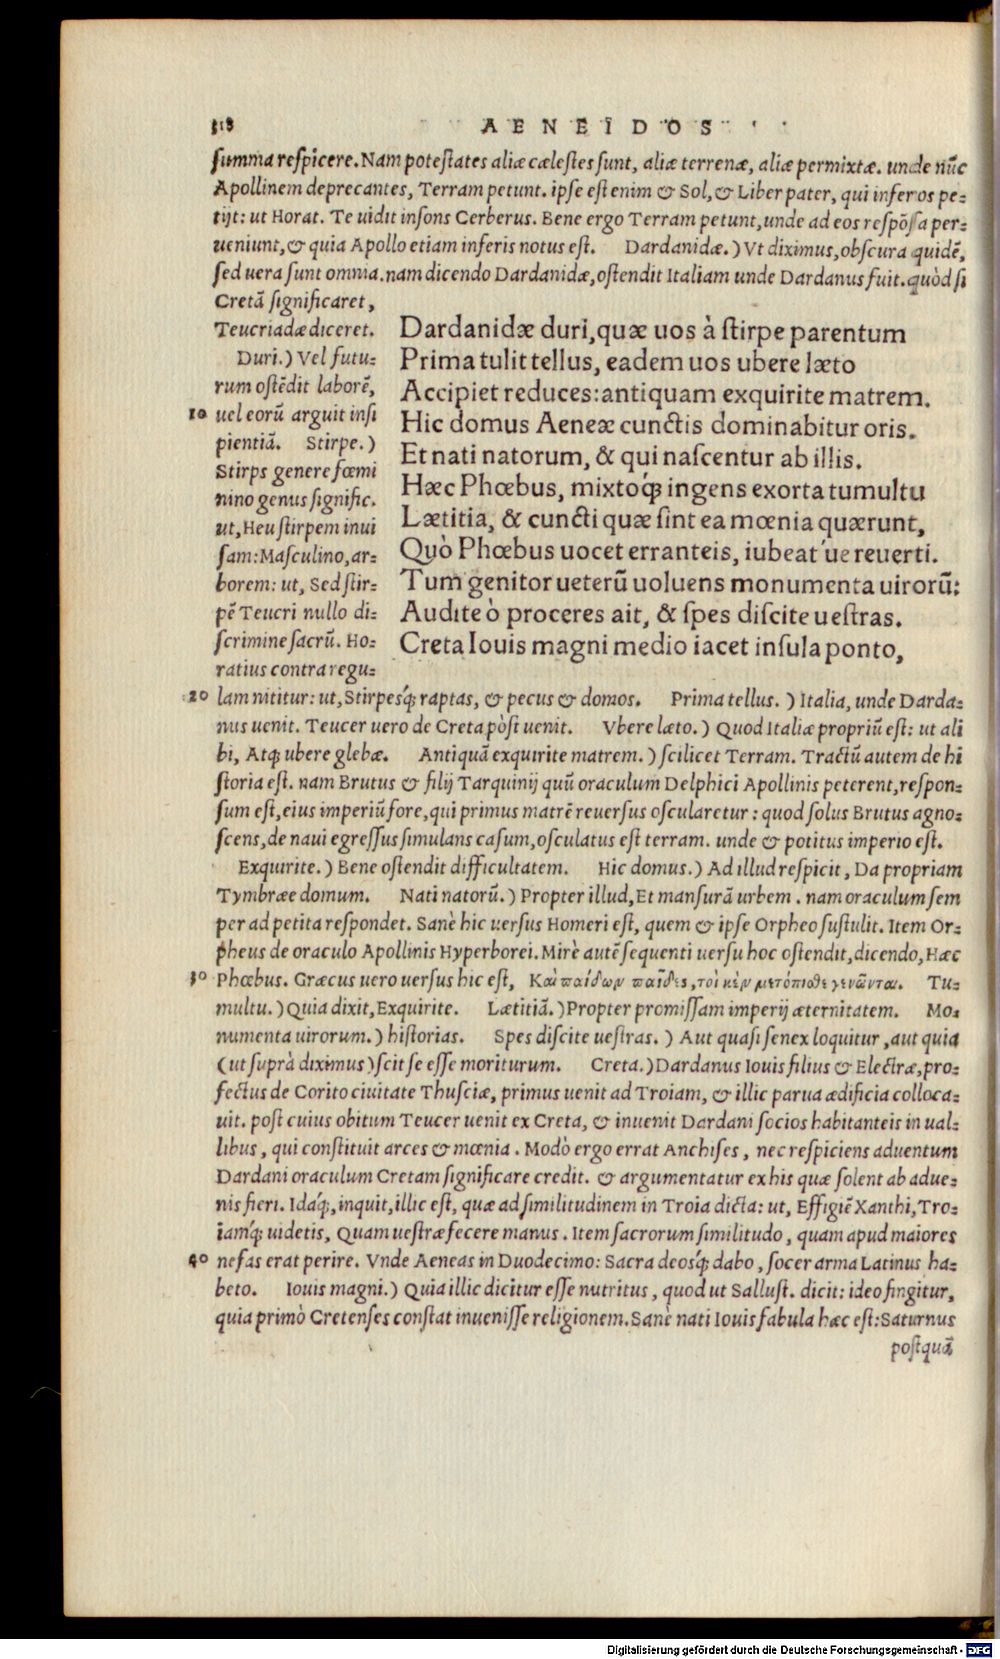 318 AENEIDOS
summa respicere. Nam potestates aliæ cælestes sunt, aliæ terrenæ, aliæ permixtæ. unde nũc
Apollinem deprecantes, Terram petunt. ipse est enim & Sol, & Liber pater, qui inferos pe-
tijt: ut Horat. Te uidit insons Cerberus. Bene ergo Terram petunt, unde ad eos respõsa per-
ueniunt, & quia Apollo etiam inferis notus est. Dardanidæ.) Vt diximus, obscura quidẽ,
sed uera sunt omnia. nam dicendo Dardanidæ, ostendit Italiam unde Dardanus fuit. quòd si
Cretã significaret,
Teucriadæ diceret.
Duri.) Vel futu-
rum ostẽdit laborẽ,
10 uel eorũ arguit insi
pientiã. Stirpe.)
Stirps genere fœmi
nino genus signific.
ut, Heu stirpem inui
sam: Masculino, ar-
borem: ut, Sed stir-
pẽ Teucri nullo di-
scrimine sacrũ. Ho-
ratius contra regu-
Dardanidæ duri, quæ uos à stirpe parentum
Prima tulit tellus, eadem uos ubere læto
Accipiet reduces: antiquam exquirite matrem.
Hic domus Aeneæ cunctis dominabitur oris.
Et nati natorum, & qui nascentur ab illis.
Hæc Phœbus, mixtoq́; ingens exorta tumultu
Lætitia, & cuncti quæ sint ea mœnia quærunt,
Quò Phœbus uocet erranteis, iubeat ue reuerti.
Tum genitor ueterũ uoluens monumenta uirorũ:
Audite ò proceres ait, & spes discite uestras.
Creta Iouis magni medio iacet insula ponto,
20 lam nititur: ut, Stirpesq́; raptas, & pecus & domos. Prima tellus.) Italia, unde Darda-
nus uenit. Teucer uero de Creta pòst uenit. Vbere læto.) Quod Italiæ propriũ est: ut ali
bi, Atq; ubere glebæ. Antiquã exquirite matrem.) scilicet Terram. Tractũ autem de hi
storia est. nam Brutus & filij Tarquinij quũ oraculum Delphici Apollinis peterent, respon-
sum est, eius imperiũ fore, qui primus matrẽ reuersus oscularetur: quod solus Brutus agno-
scens, de naui egressus simulans casum, osculatus est terram. unde & potitus imperio est.
Exquirite.) Bene ostendit difficultatem. Hic domus.) Ad illud respicit, Da propriam
Tymbræe domum. Nati natorũ.) Propter illud, Et mansurã urbem. nam oraculum sem
per ad petita respondet. Sanè hic uersus Homeri est, quem & ipse Orpheo sustulit. Item Or-
pheus de oraculo Apollinis Hyperborei. Mirè autẽ sequenti uersu hoc ostendit, dicendo, Hæc
30 Phœbus. Græcus uero uersus hic est, Καὶ παίδων παῖδες, τοί κεν μετόπισθε γενῶνται. Tu-
multu.) Quia dixit, Exquirite. Lætitiã.) Propter promissam imperij æternitatem. Mo-
numenta uirorum.) historias. Spes discite uestras.) Aut quasi senex loquitur, aut quia
(ut suprà diximus) scit se esse moriturum. Creta.) Dardanus Iouis filius & Electræ, pro-
fectus de Corito ciuitate Thusciæ, primus uenit ad Troiam, & illic parua ædificia colloca-
uit. post cuius obitum Teucer uenit ex Creta, & inuenit Dardani socios habitanteis in ual-
libus, qui constituit arces & mœnia. Modò ergo errat Anchises, nec respiciens aduentum
Dardani oraculum Cretam significare credit. & argumentatur ex his quæ solent ab adue-
nis fieri. Idaq́;, inquit, illic est, quæ ad similitudinem in Troia dicta: ut, Effigiẽ Xanthi, Tro-
iamq́; uidetis, Quam uestræ fecere manus. Item sacrorum similitudo, quam apud maiores
40 nefas erat perire. Vnde Aeneas in Duodecimo: Sacra deosq́; dabo, socer arma Latinus ha-
beto. Iouis magni.) Quia illic dicitur esse nutritus, quod ut Sallust. dicit: ideo fingitur,
quia primò Cretenses constat inuenisse religionem. Sanè nati Iouis fabula hæc est: Saturnus
postquã
Digitalisierung gefördert durch die Deutsche Forschungsgemeinschaft - DFG